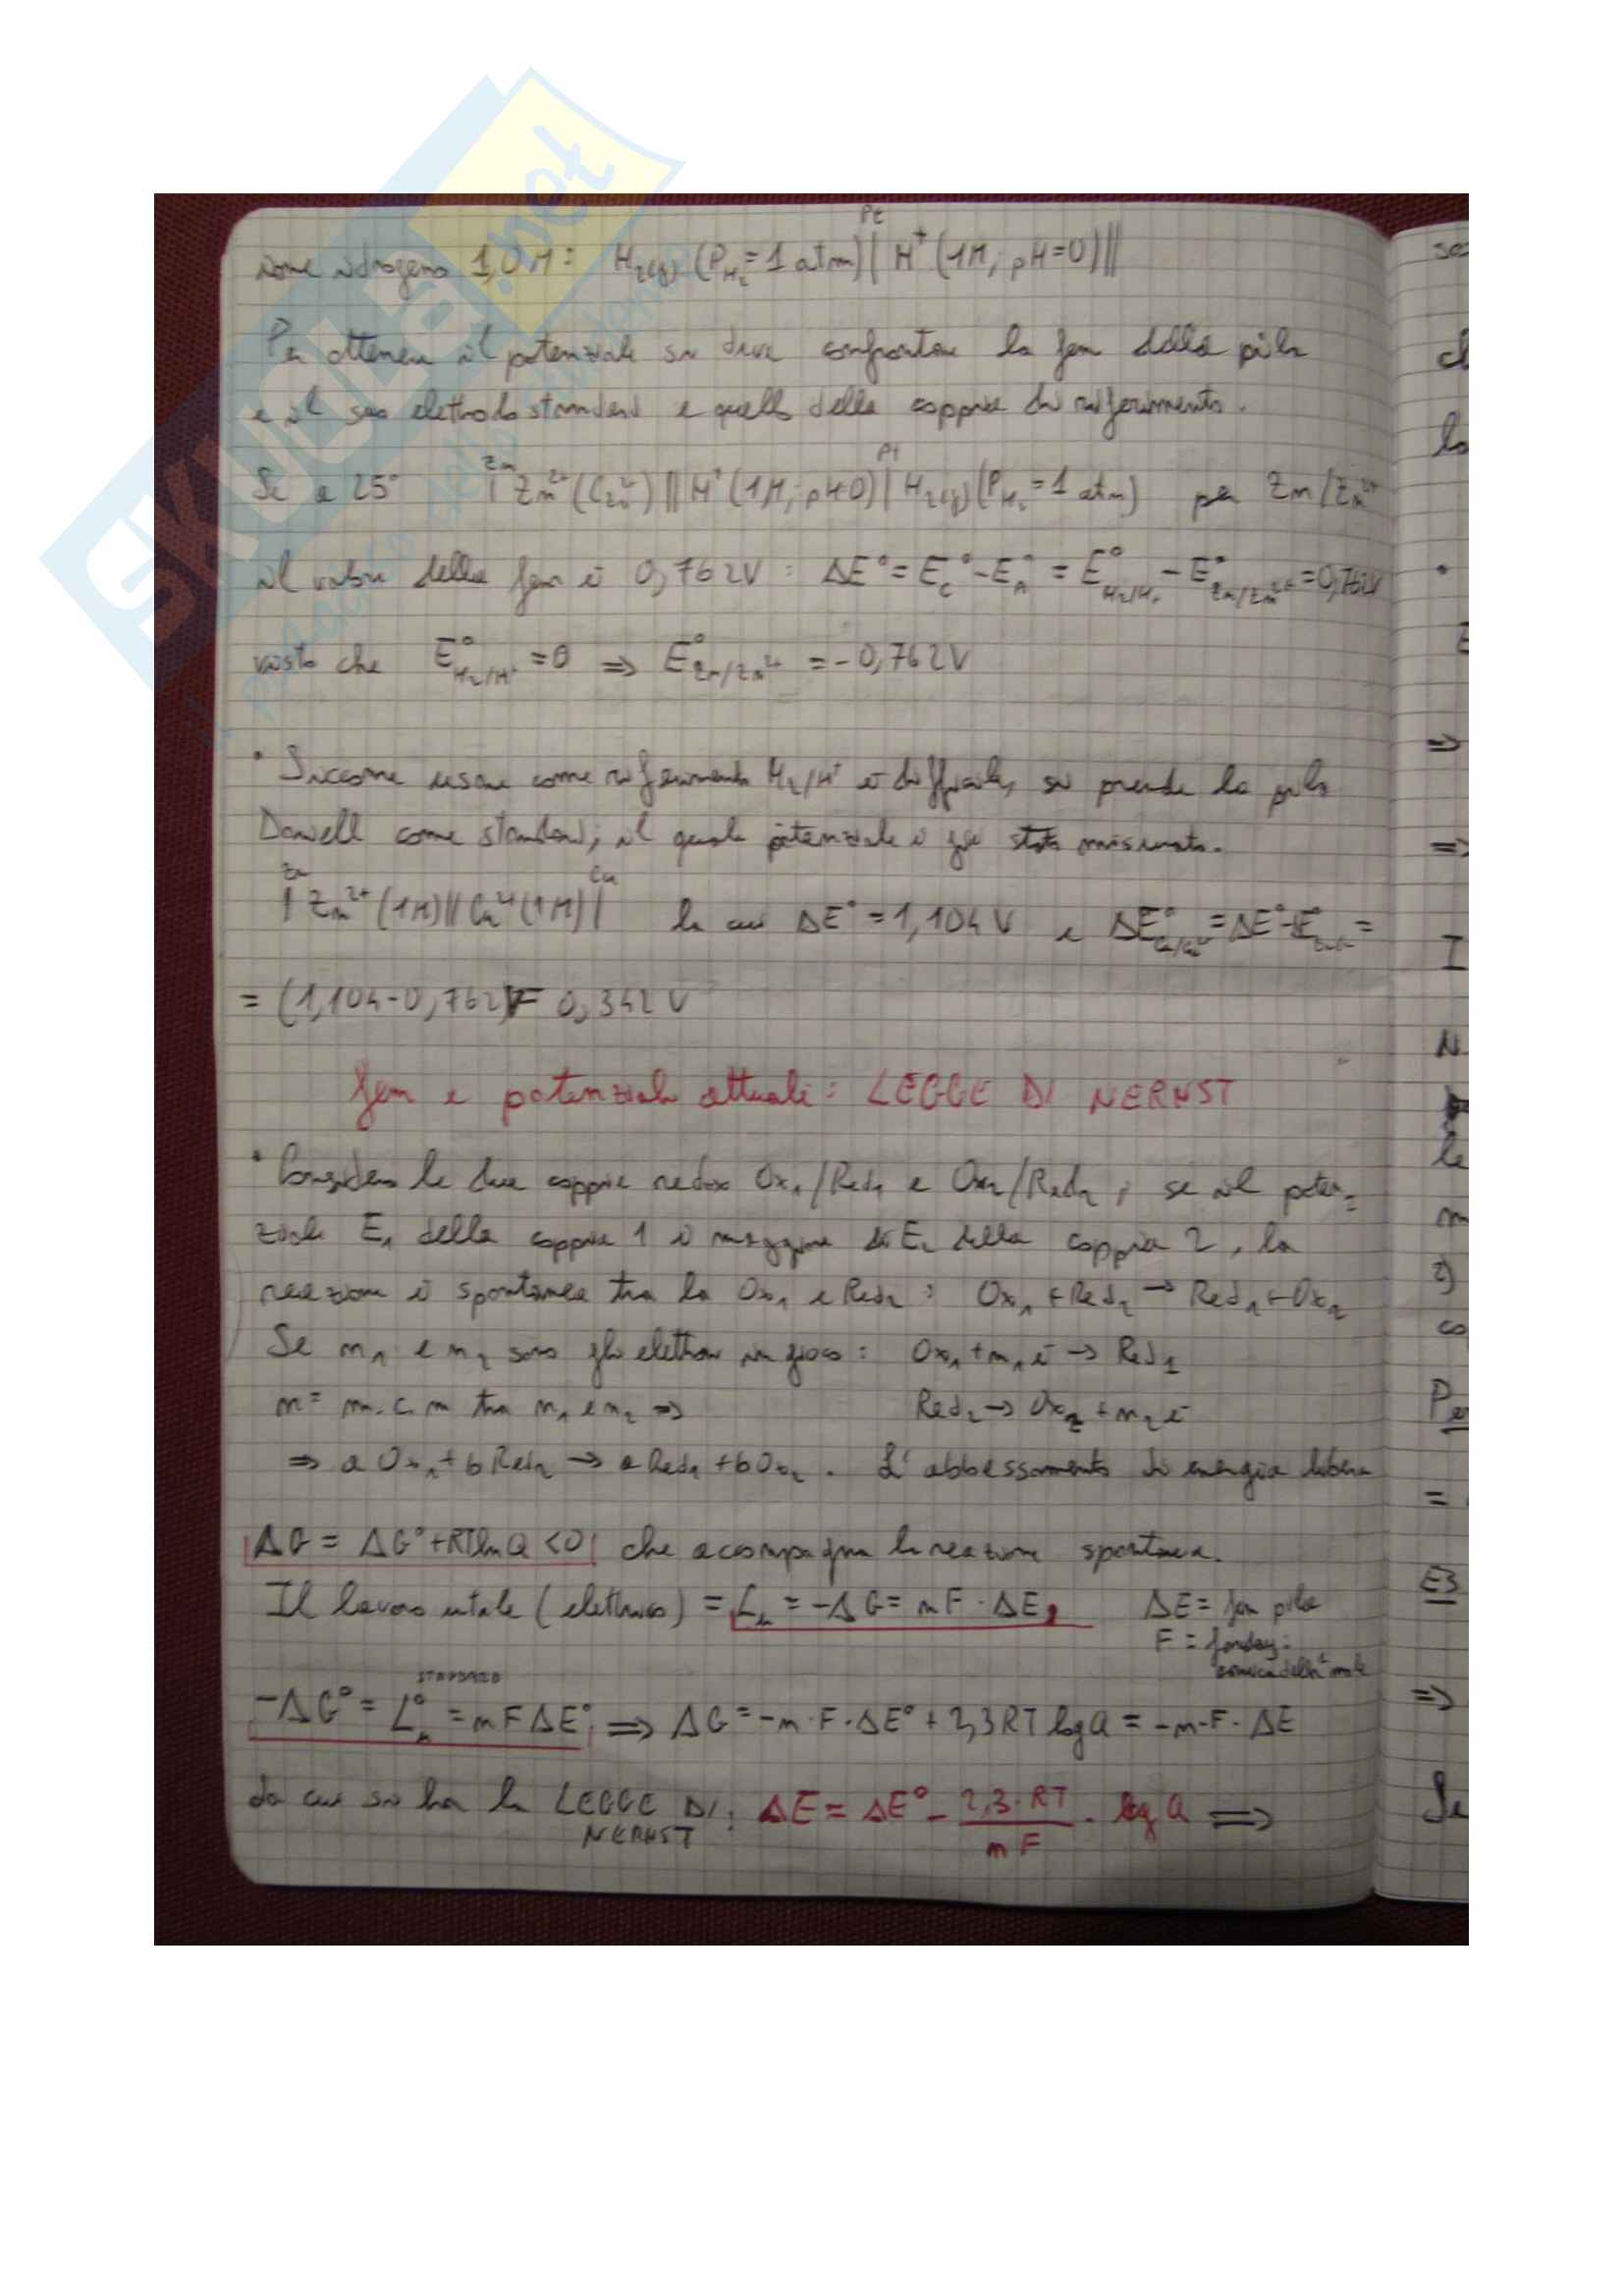 SKUOLA.net
Pt
ione idrogeno 1,0 M: H₂(g) (P_H₂ = 1 atm) | H⁺ (1M, pH=0) ||
Per ottenere il potenziale si deve confrontare la fem della pila
e il suo elettrodo standard e quello della coppia di riferimento.
Zn Pt
Se a 25° | Zn²⁺ ( ) || H⁺ (1M, pH 0) | H₂(g) (P_H₂ = 1 atm) per Zn/Zn²⁺
il valore della fem è 0,762V: ΔE° = E_C° - E_A° = E°_H₂/H⁺ - E°_Zn/Zn²⁺ = 0,762V
visto che E°_H₂/H⁺ = 0 ⇒ E°_Zn/Zn²⁺ = -0,762V
• Siccome usare come riferimento H₂/H⁺ è difficile, si prende la pila
Daniell come standard, il quale potenziale è già stato misurato.
Zn Cu
| Zn²⁺ (1M) || Cu²⁺ (1M) | la cui ΔE° = 1,104 V e ΔE°_Cu/Cu²⁺ = ΔE° + E° =
= (1,104-0,762)V = 0,342 V
fem e potenziale attuali: LEGGE DI NERNST
• Considero le due coppie redox Ox₁/Red₁ e Ox₂/Red₂; se il poten=
ziale E₁ della coppia 1 è maggiore di E₂ della coppia 2, la
reazione è spontanea tra la Ox₁ e Red₂: Ox₁ + Red₂ → Red₁ + Ox₂
Se n₁ e n₂ sono gli elettroni in gioco: Ox₁ + n₁ e⁻ → Red₁
n = m.c.m tra n₁ e n₂ ⇒ Red₂ → Ox₂ + n₂ e⁻
⇒ a Ox₁ + b Red₂ → a Red₁ + b Ox₂. L'abbassamento di energia libera
ΔG = ΔG° + RT ln Q < 0 che accompagna la reazione spontanea.
Il lavoro utile (elettrico) = L_u = -ΔG = nF · ΔE, ΔE = fem pila
F = faraday:
carica della mole
STANDARD
-ΔG° = L°_u = nFΔE° ⇒ ΔG = -n·F·ΔE° + 2,3 RT log Q = -n·F· ΔE
da cui si ha la LEGGE DI: ΔE = ΔE° - 2,3·RT/nF · log Q ⇒
NERNST